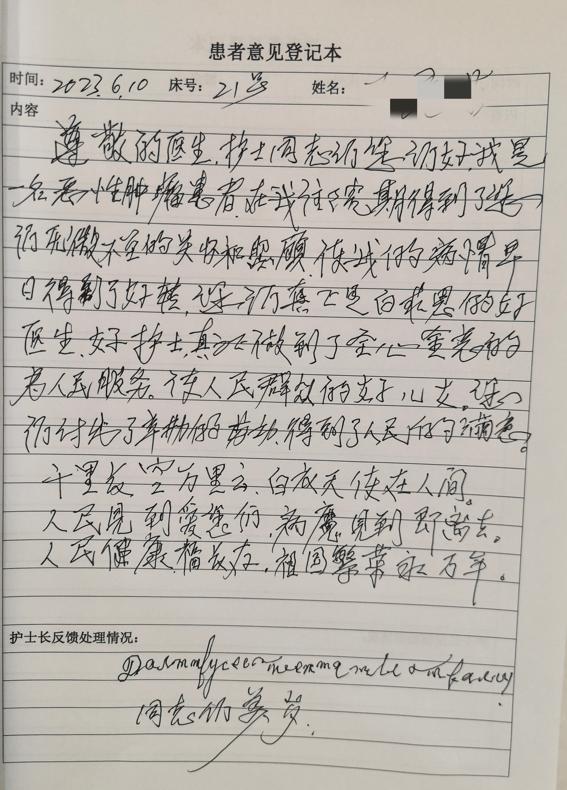 患者意见登记本
时间：2023.6.10 床号：21号 姓名：
内容
尊敬的医生、护士同志们您们好，我是
一名恶性肿瘤患者，在我住院期得到了您
们无微不至的关怀和照顾，使我的病情早
日得到了好转，您们真正是白求恩的好
医生、好护士，真正做到了全心全意的
为人民服务。人民群众的好儿女。您
们付出了辛勤的劳动，得到了人民的满意。
千里 空万里云，白衣天使在人间。
人民见到爱您们，病魔见到即离去。
人民健康福长在，祖国繁荣永万年。
护士长反馈处理情况：
同志们